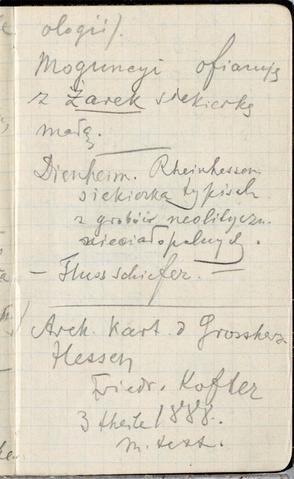 ologii).
Moguncyi ofiaruję
z Żarek siekierkę
małą.
Dienheim. Rheinhessen
siekierka typisch
z grobów neolityczn.
nieciałopalnych.
– Flussschiefer. –
Arch. Kart. d Grossherz.
Hessen
Friedr. Kofler
3 theile 1888.
m. text.